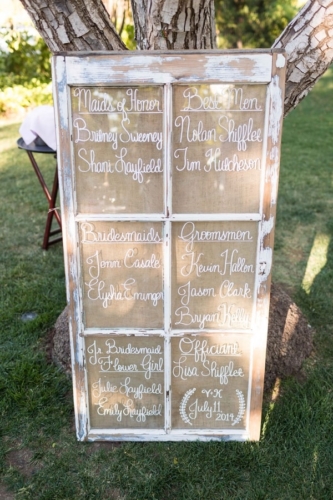 Maids of Honor
Britney Sweeney
Shani Layfield
Best Men
Nolan Shifflee
Tim Hutcheson
Bridesmaids
Jenn Casale
Elysha
Groomsmon
Kevin Hallon
Jason Clark
Bryan
Jr Bridesmaid
Flower Girl
Julie Layfield
Emily Layfield
Officiant
Lisa Shifflee
V+K
July 11, 2014